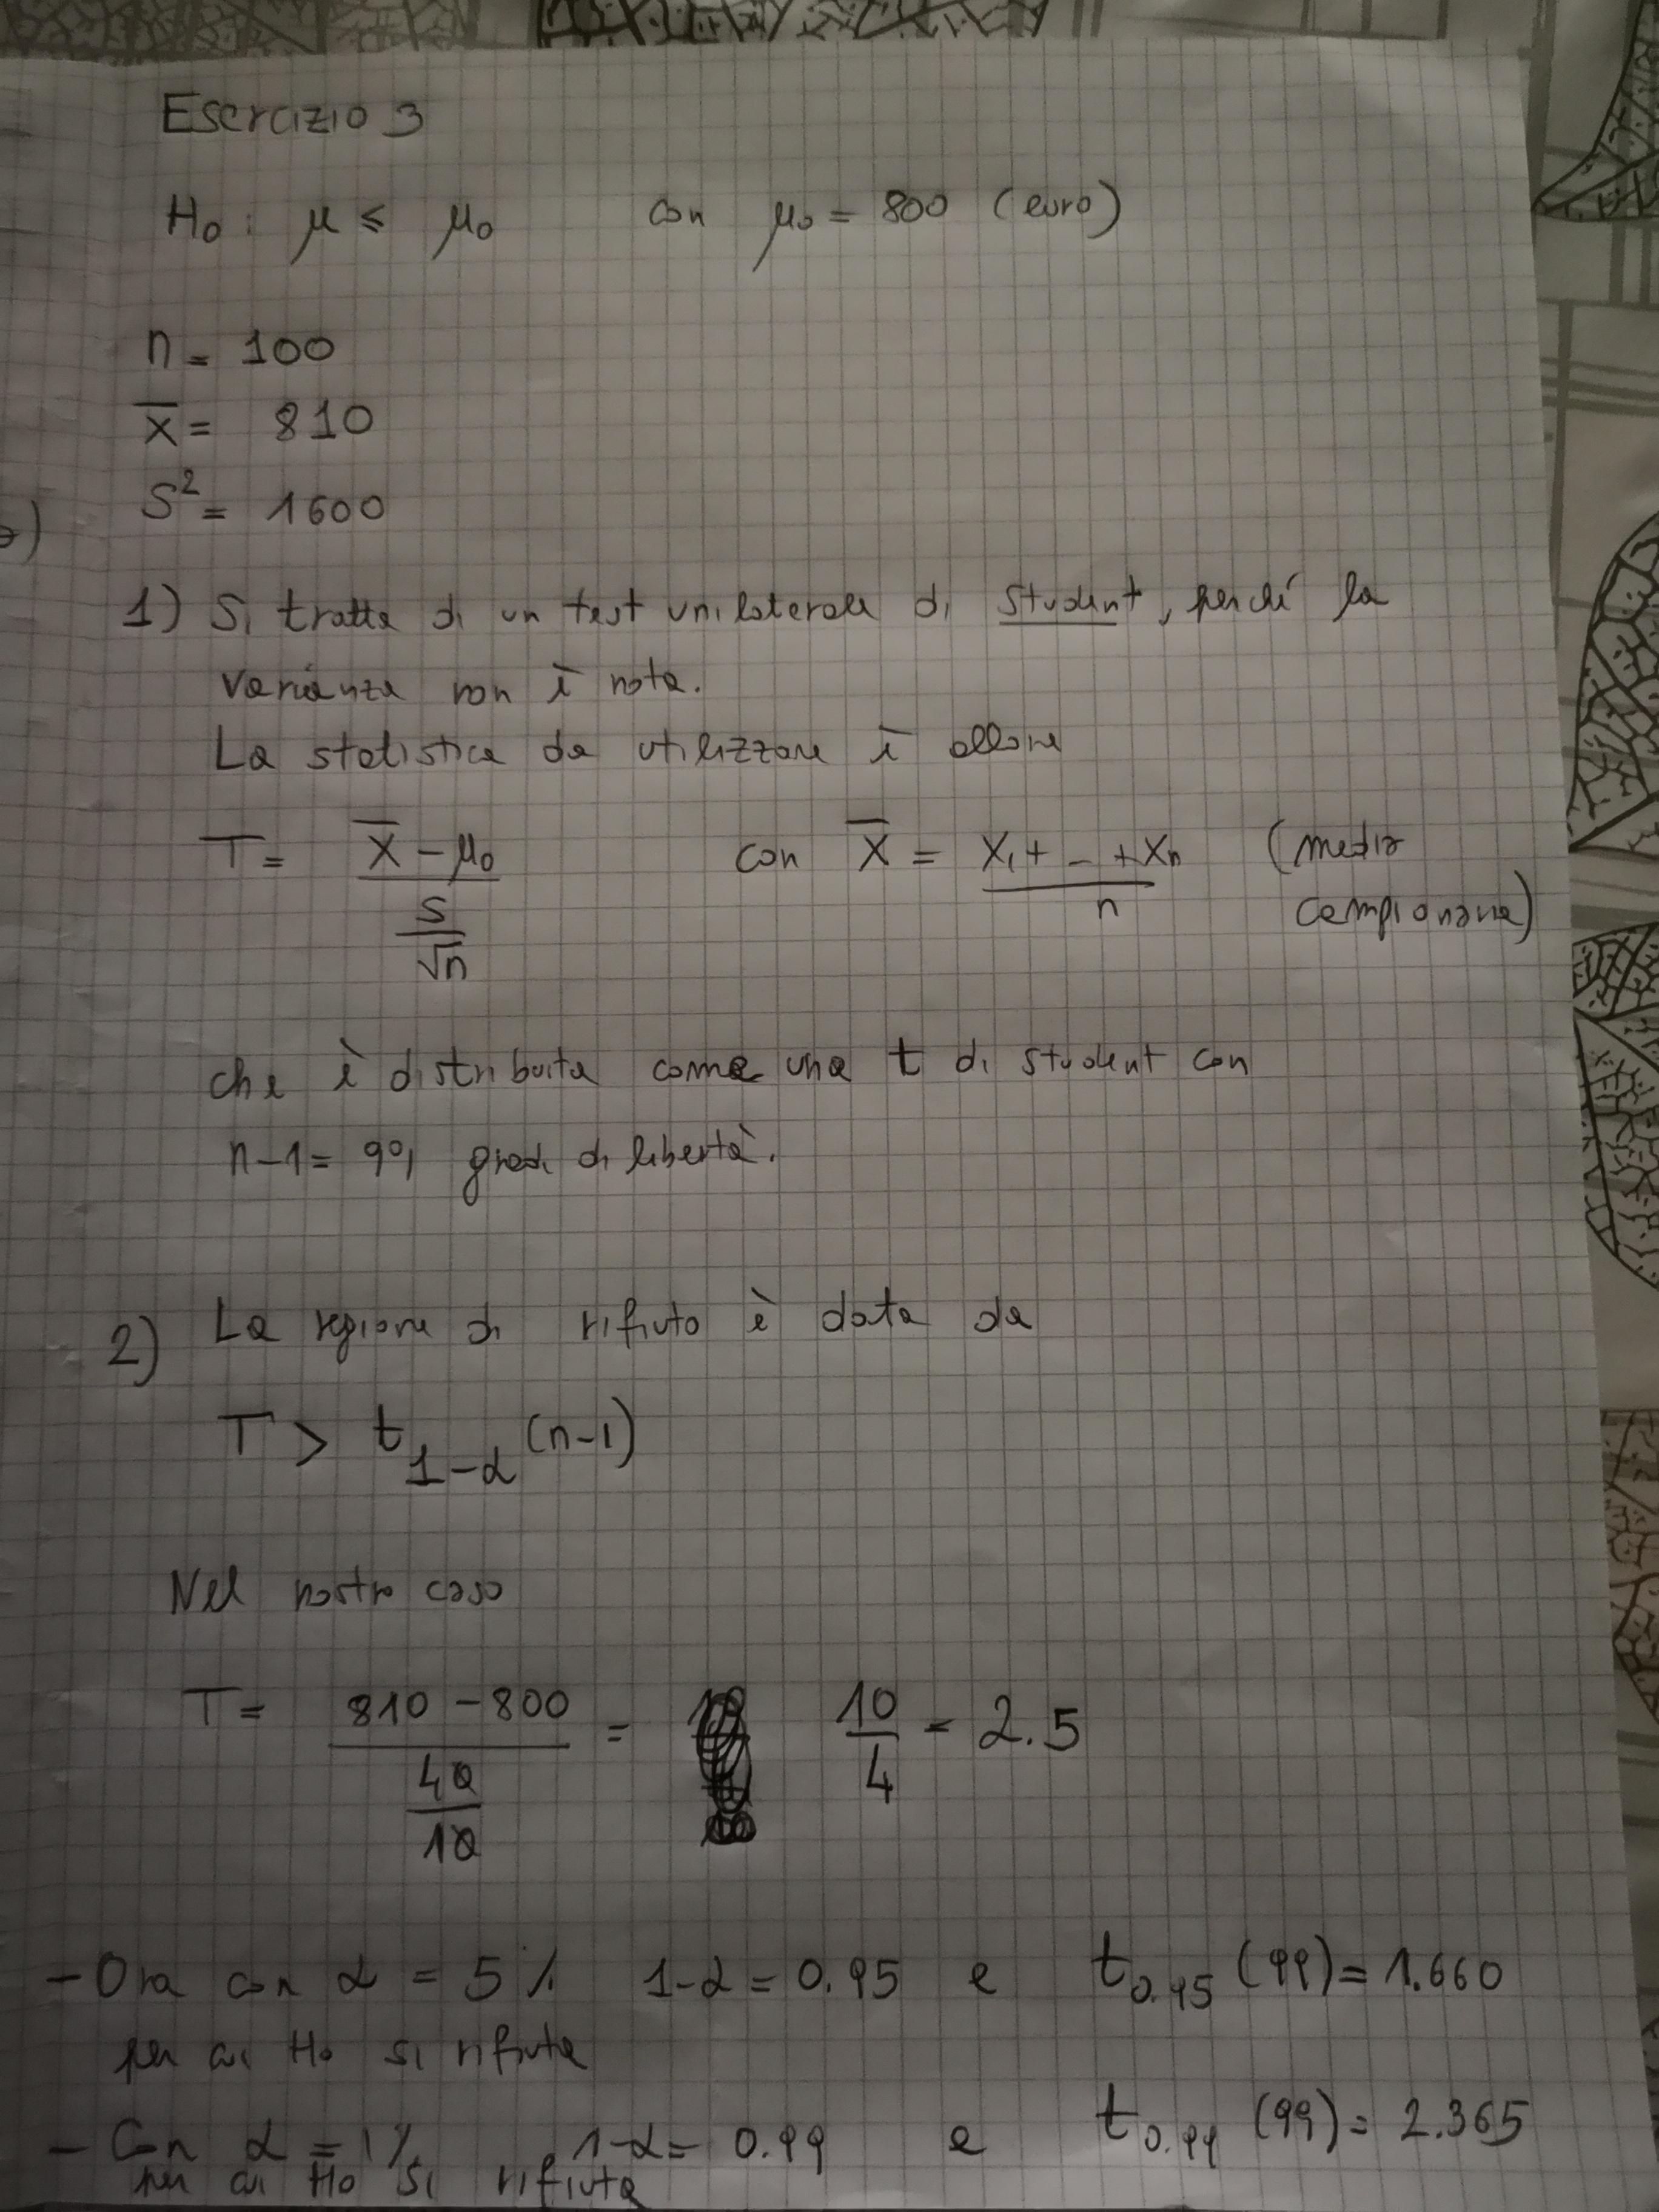 Esercizio 3
H₀: μ ≤ μ₀ con μ₀ = 800 (euro)
n = 100
x̄ = 810
S² = 1600
1) Si tratta di un test unilaterale di Student, perché la
varianza non è nota.
La statistica da utilizzare è allora
T = (X̄ - μ₀) / (S / √n) con X̄ = (X₁ + - + Xₙ) / n (media
campionaria)
che è distribuita come una t di Student con
n-1 = 99 gradi di libertà.
2) La regione di rifiuto è data da
T > t₁₋α (n-1)
Nel nostro caso
T = (810 - 800) / (40 / 10) = 10/4 = 2.5
- Ora con α = 5% 1-α = 0.95 e t₀.₉₅ (99) = 1.660
per cui H₀ si rifiuta
- Con α = 1% 1-α = 0.99 e t₀.₉₉ (99) = 2.365
per cui H₀ si rifiuta